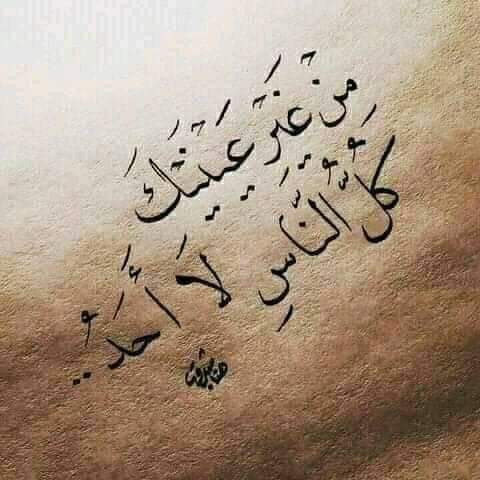 مِنْ غَيْرِ عَيْنَيْكَ
كُلُّ النَّاسِ لَا أَحَدُ..